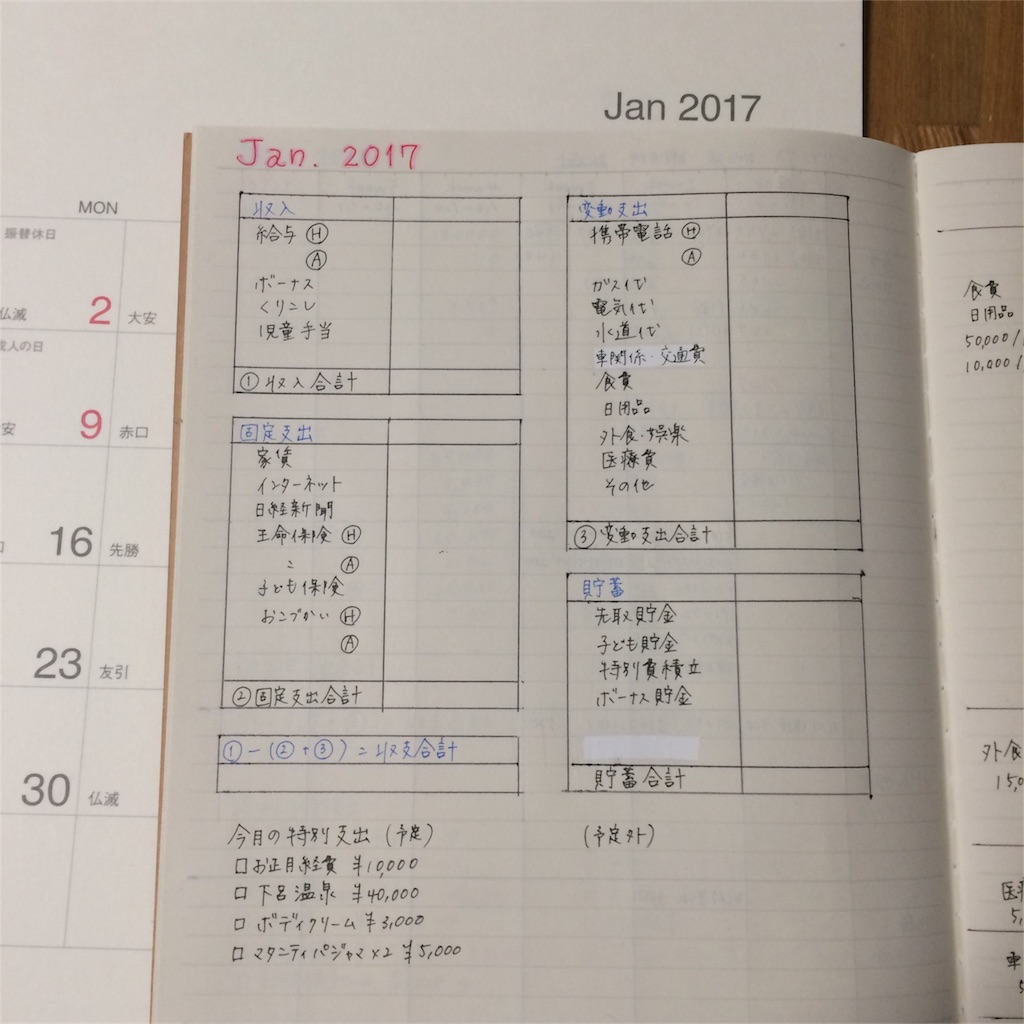 Jan 2017
MON
振替休日
仏滅 2 大安
成人の日
9 赤口
16 先勝
23 友引
30 仏滅
Jan. 2017
収入
給与 Ⓗ
Ⓐ
ボーナス
くりこし
児童手当
①収入合計
固定支出
家賃
インターネット
日経新聞
生命保険 Ⓗ
〃 Ⓐ
子ども保険
おこづかい Ⓗ
Ⓐ
②固定支出合計
①-(②+③)=収支合計
今月の特別支出(予定)
□お正月経費 ¥10,000
□下呂温泉 ¥40,000
□ボディクリーム ¥3,000
□マタニティパジャマ×2 ¥5,000
変動支出
携帯電話 Ⓗ
Ⓐ
ガス代
電気代
水道代
車関係・交通費
食費
日用品
外食・娯楽
医療費
その他
③変動支出合計
貯蓄
先取貯金
子ども貯金
特別費積立
ボーナス貯金
貯蓄合計
(予定外)
食費
日用品
50,000/
10,000/
外食